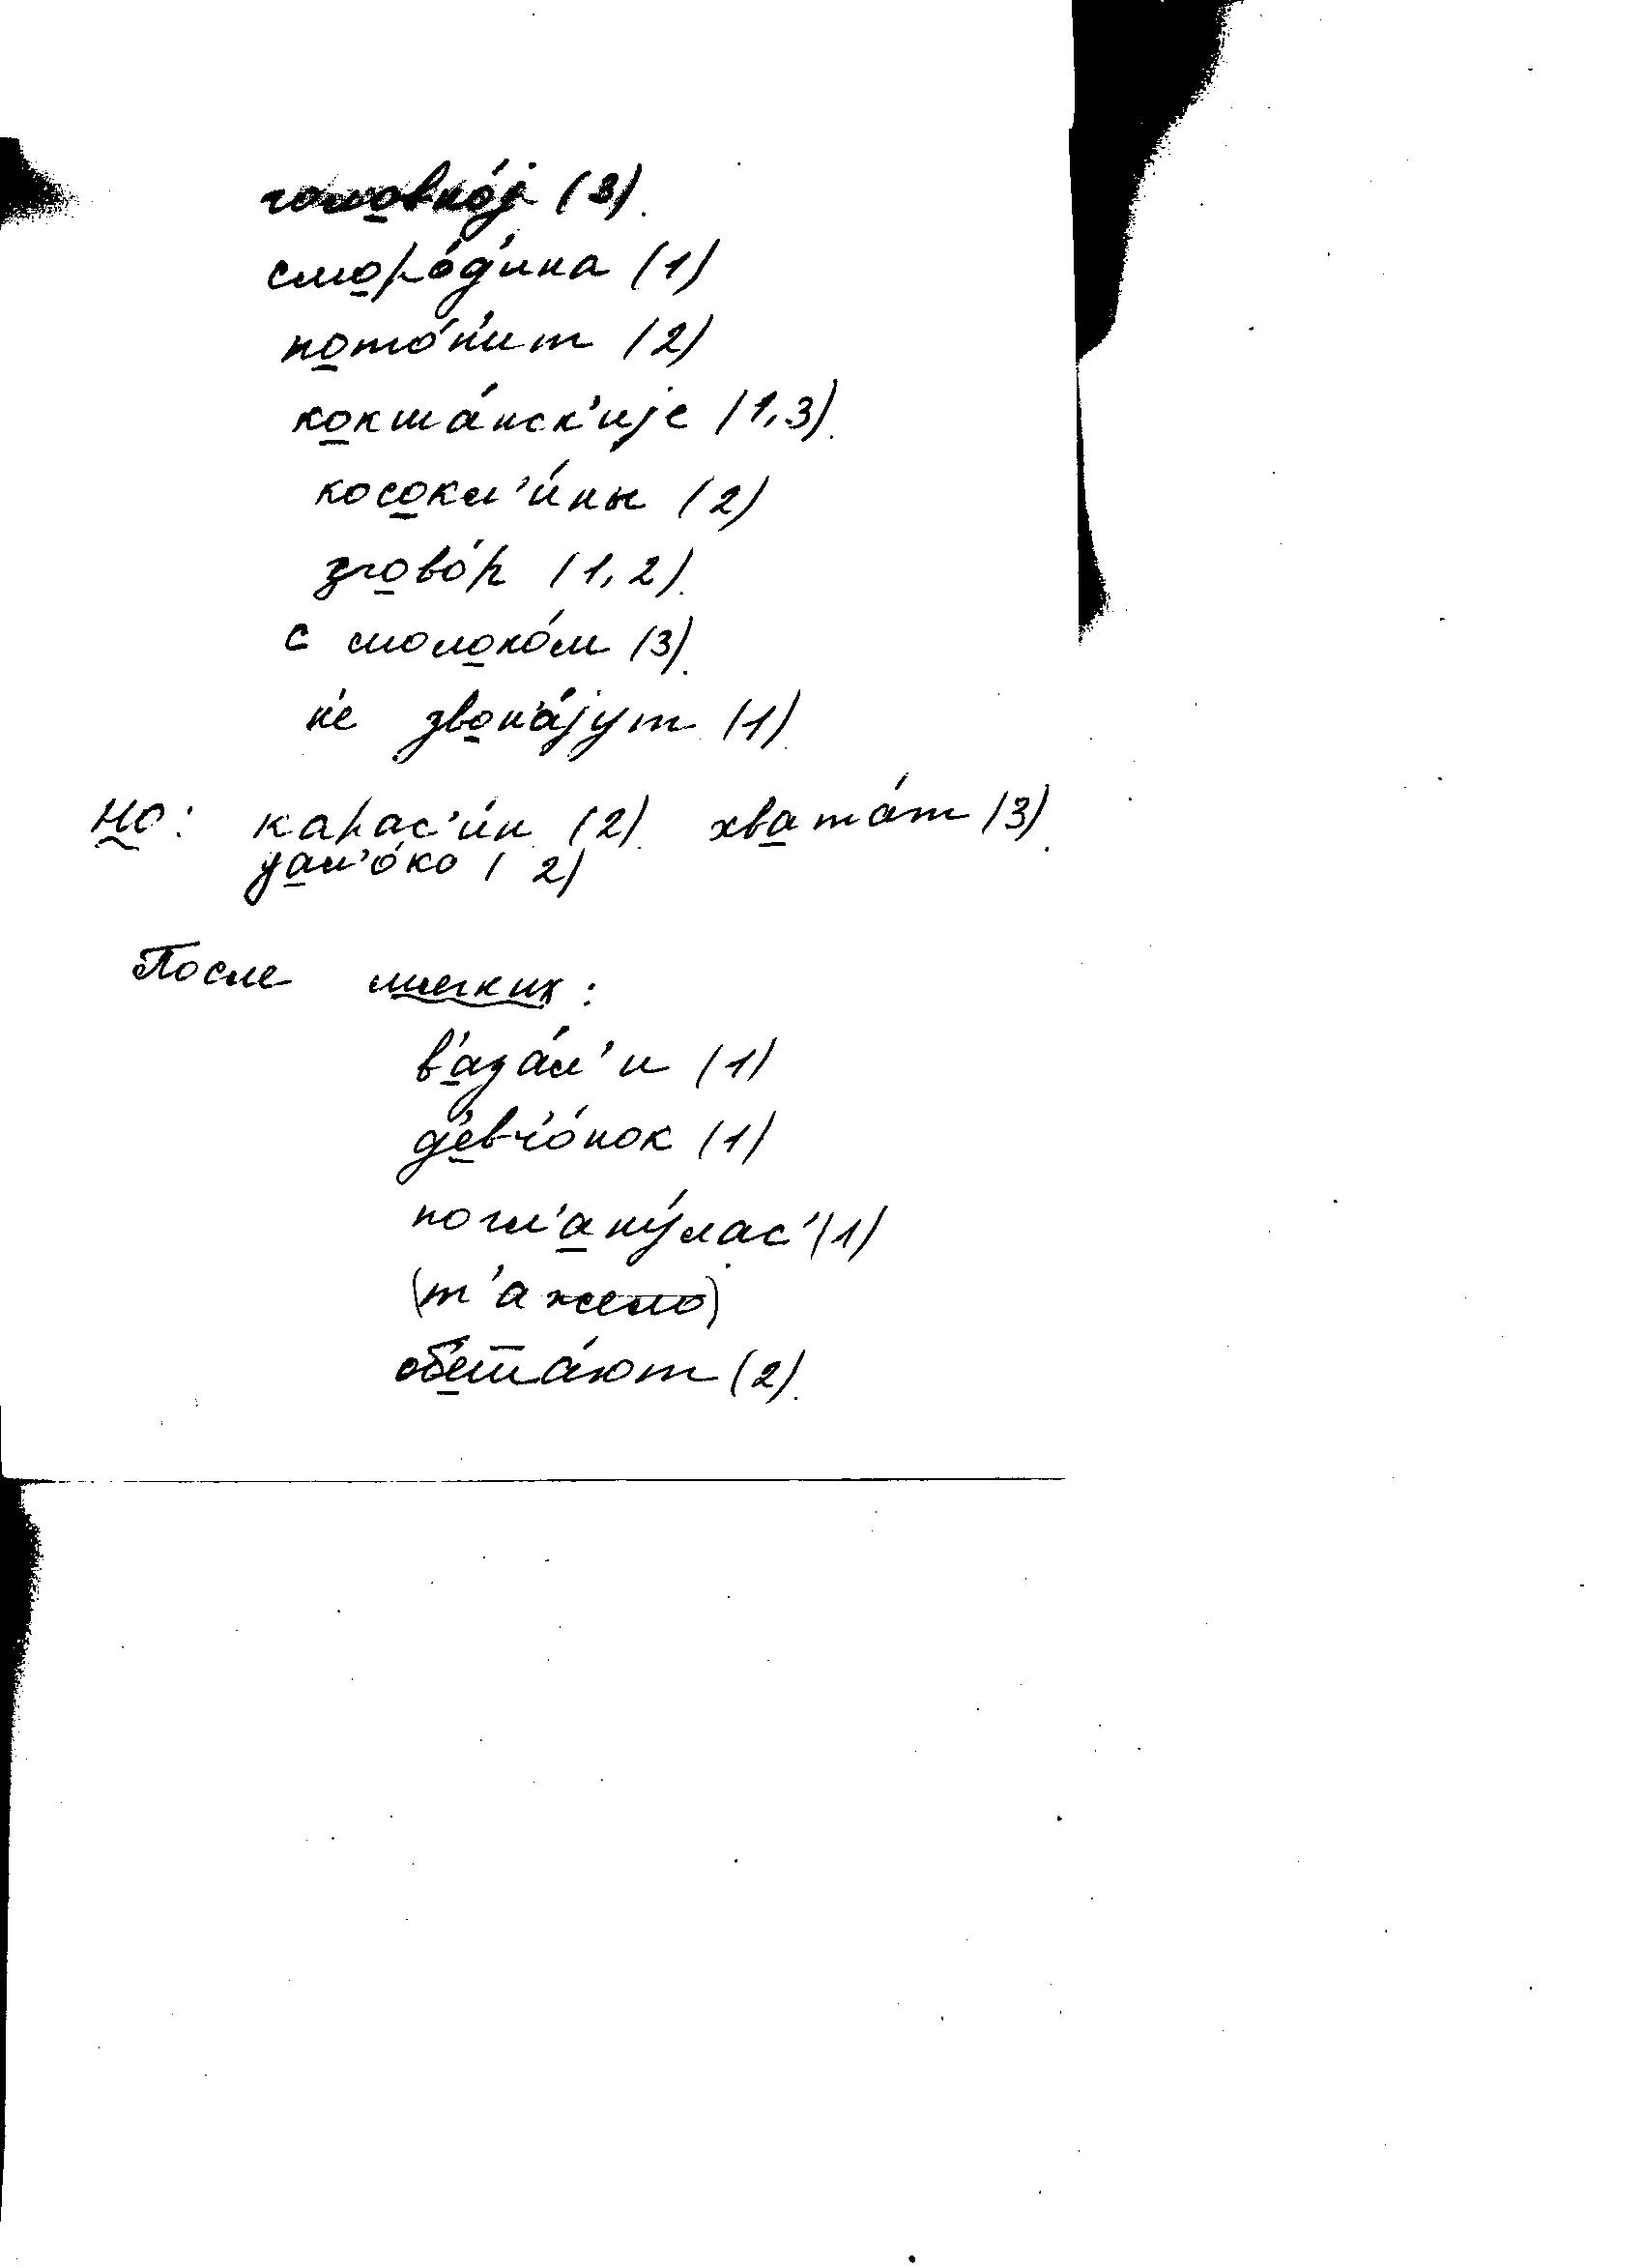 головнój (3).
сморóд'ина (1)
потóн'ит (2)
кокшáнск'ијe (1,3).
косокл'и́ны (2)
зговóр (1,2).
с молокóм (3).
н'е звон'áјут (1)
Но: карас'и́н (2). хватáт (3).
дал'óко (2)
После мягких:
в'азáл'и (1)
д'евч'óнок (1)
погл'анýлас' (1)
(т'ажело)
об'ешáют (2).